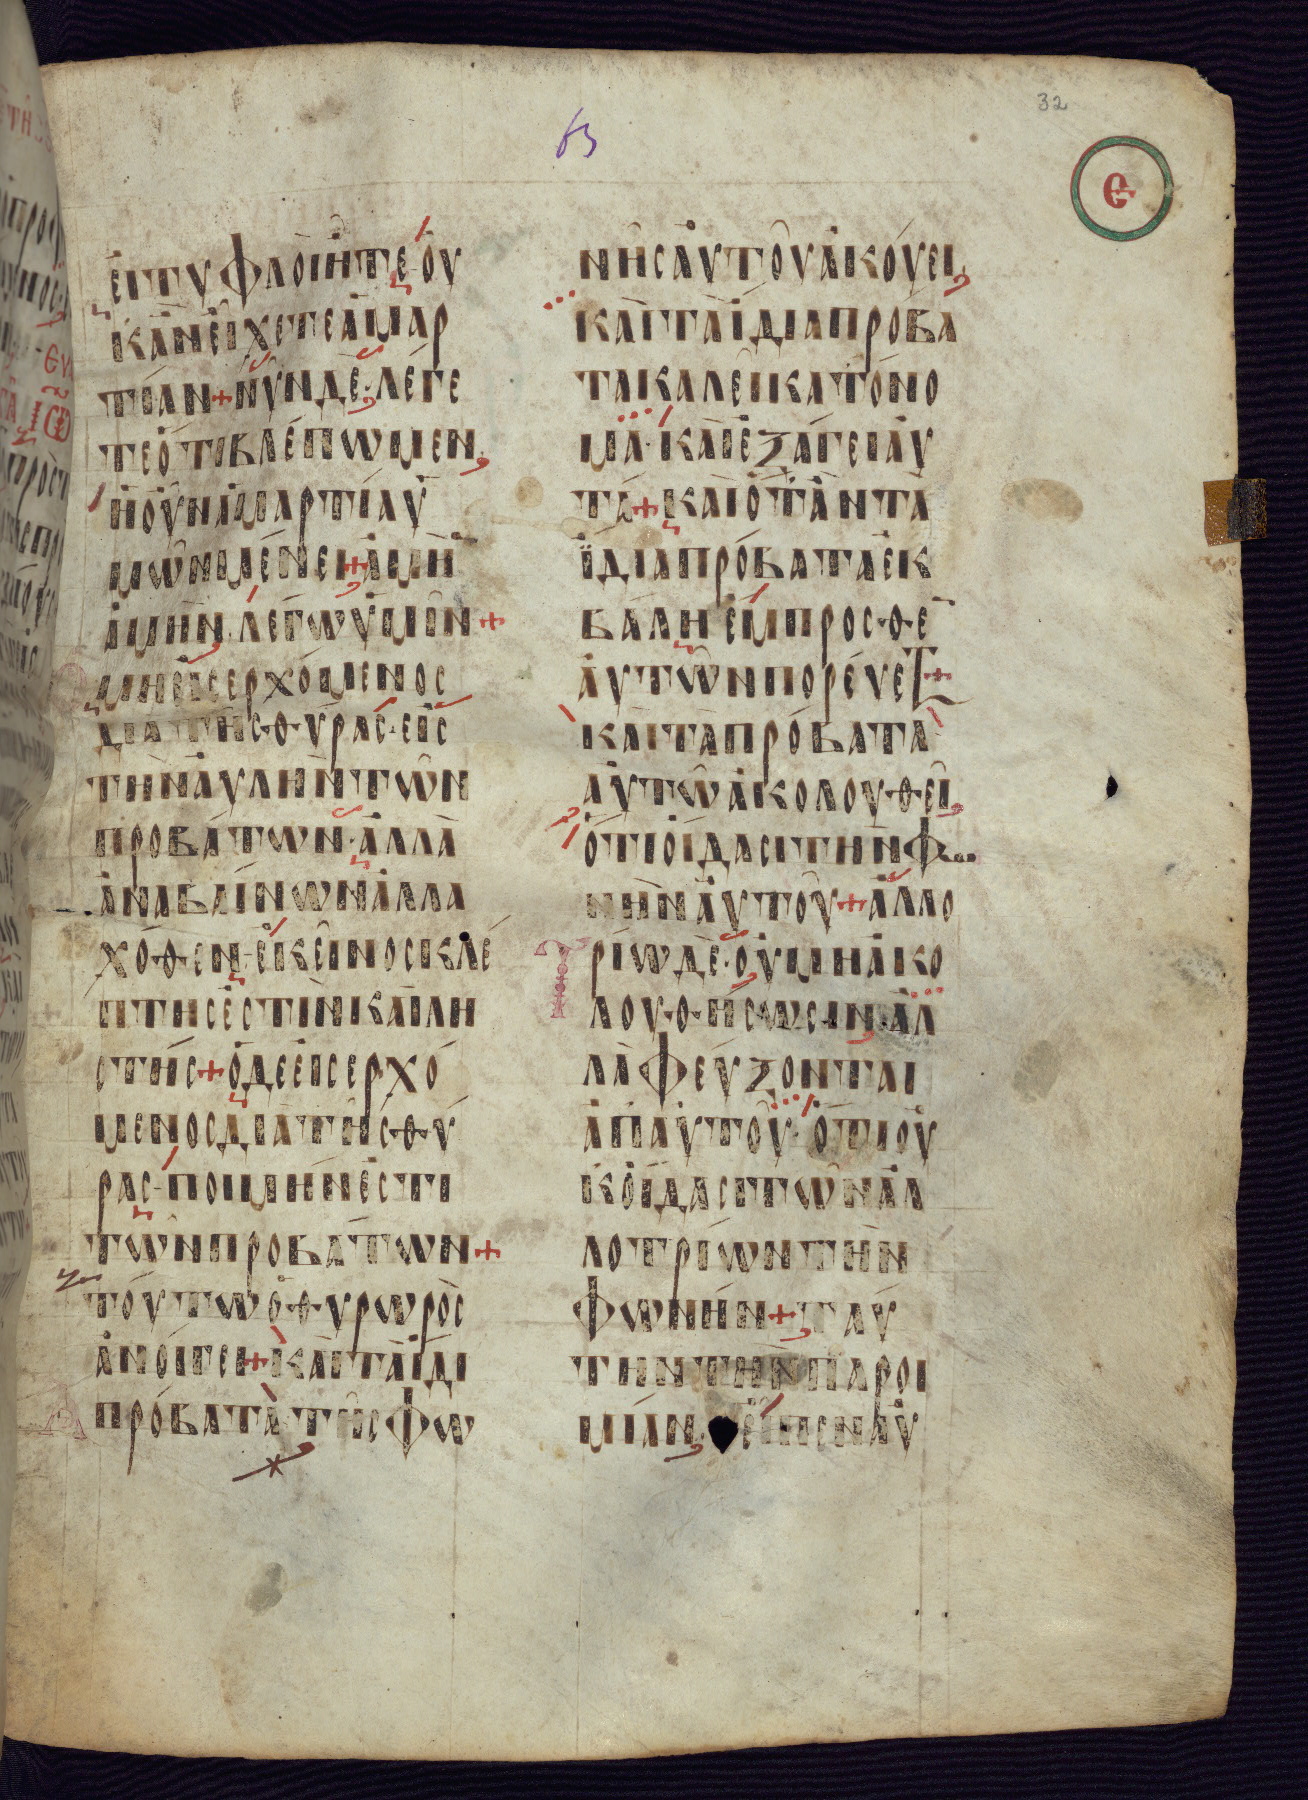 32
63
ε
εἰ τυφλοὶ ἦτε· οὐ
κἂν εἴχετε ἁμαρ
τίαν + νῦν δὲ· λέγε
τε ὅτι βλέπωμεν,
ἡ οὖν ἁμαρτία ὑ
μῶν μένει + ἀμὴ
ἀμὴν λέγω ὑμῖν +
ὁ μὴ εἰσερχόμενος
διὰ τῆς θύρας· εἰς
τὴν αὐλὴν τῶν
προβάτων· ἀλλὰ
ἀναβαίνων ἀλλα
χόθεν· ἐκεῖνος κλέ
πτης ἐστὶν καὶ λη
στής + ὁ δὲ εἰσερχό
μενος διὰ τῆς θύ
ρας· ποιμήν ἐστι
τῶν προβάτων +
τούτω ὁ θυρωρὸς
ἀνοίγει + καὶ τὰ ἴδι
πρόβατα τῆς φω
νῆς αὐτοῦ ἀκούει,
καὶ τὰ ἴδια πρόβα
τα καλεῖ κατ' ὄνο
μα· καὶ ἐξάγει αὐ
τά + καὶ ὅταν τὰ
ἴδια πρόβατα ἐκ
βάλη ἔμπροσθε
αὐτῶν πορεύεται +
καὶ τὰ πρόβατα
αὐτῶ ἀκολουθεῖ,
ὅτι οἴδασι τὴν φω
νὴν αὐτοῦ + ἀλλο
τρίω δὲ· οὐ μὴ ἀκο
λουθήσωσιν, ἀλ
λὰ φεύξονται
ἀπ' αὐτοῦ· ὅτι οὐ
κ οἴδασι τῶν ἀλ
λοτρίων τὴν
φωνήν + ταύ
την τὴν παροι
μίαν, εἶπεν αὐ